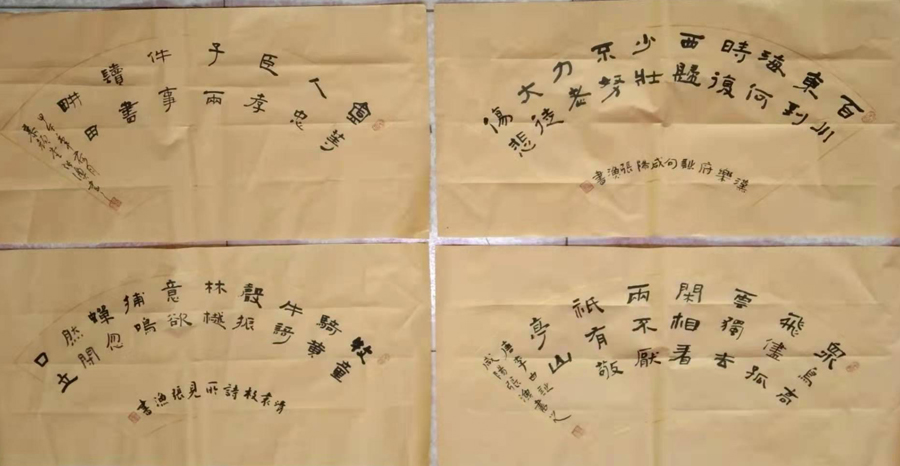 忠
臣孝
子兩
件事
讀書
畊田
百川
東到
海何
時復
西歸
少壯
不努
力老
大徒
傷悲
漢樂府詩句咸陽張漁書
牧童
騎黃
牛歌
聲振
林樾
意欲
捕鳴
蟬忽
然閉
口立
清袁枚詩所見張漁書
眾鳥高
飛盡孤
雲獨去
閑相看
兩不厭
祇有敬
亭山
唐李白詩
咸陽張漁書之